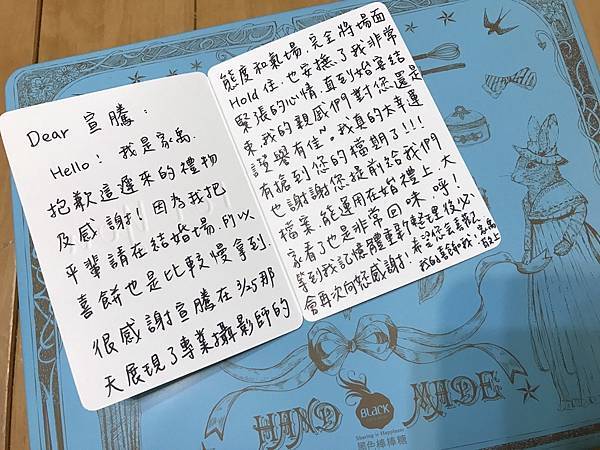 Dear 宣騰：
Hello！我是家禹.
抱歉這遲來的禮物
及感謝！因為我把
平輩請在結婚場.所以
喜餅也是比較慢拿到.
很感謝宣騰在3/25那
天展現了專業攝影師的
態度和氣場.完全將場面
Hold住.也安撫了我非常
緊張的心情.直到婚宴結
束.我的親戚們對您還是
讚譽有佳~我真的太幸運
有搶到您的檔期了!!!
也謝謝您提前給我們
檔案.能運用在婚禮上.大
家看了也是非常回味.呼！
等到我記憶體重新整理後必
會再次向您感謝！
家禹
敬上
HAND MADE
BLACK
Sharing is Happiness
黑色棒棒糖